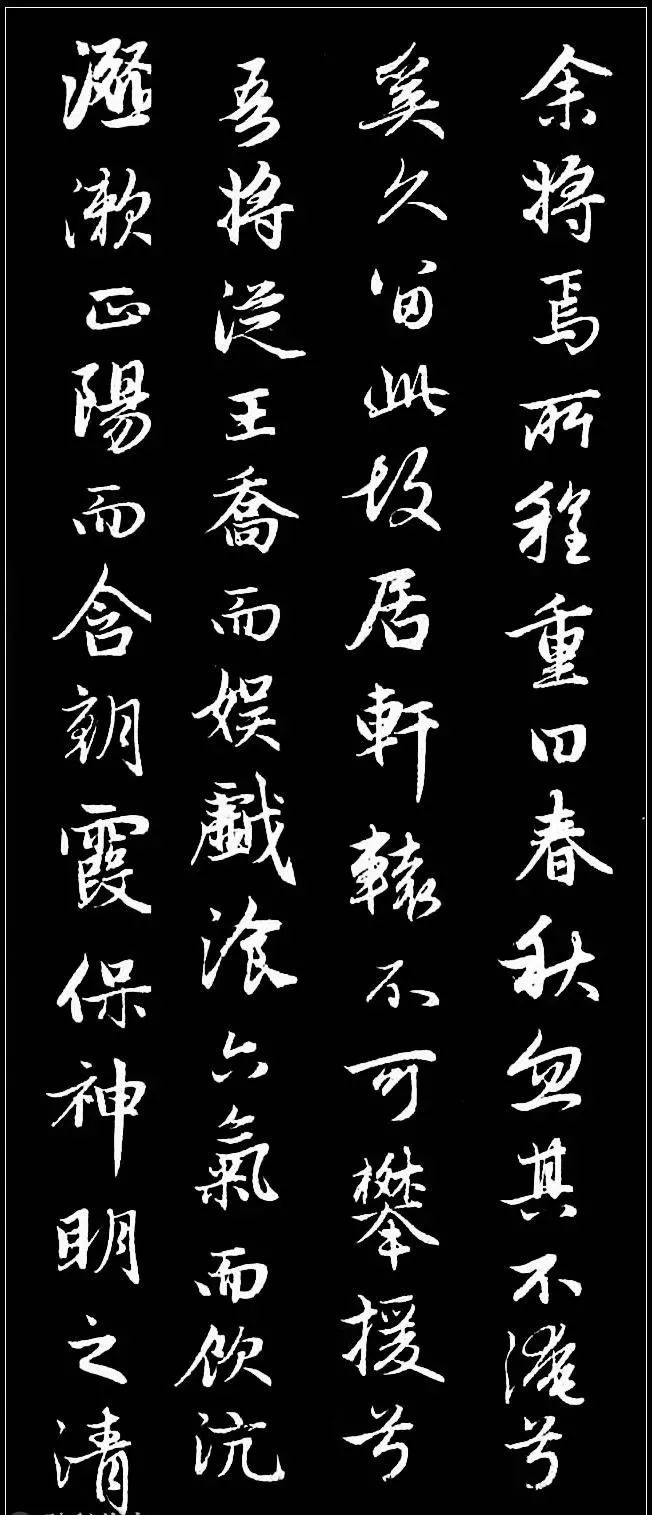 余將焉所程重曰春秋忽其不淹兮
奚久留此故居軒轅不可攀援兮
吾將從王喬而娛戲湌六氣而飲沆
瀣漱正陽而含朝霞保神明之清